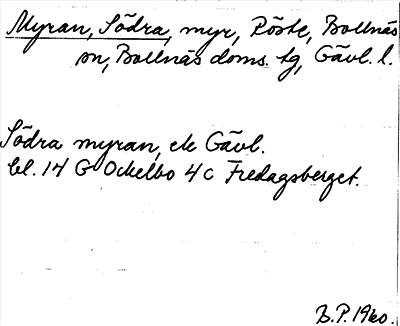 Myran, Södra, myr, Röste, Bollnäs
sn, Bollnäs doms. tg, Gävl. l.
Södra myran, ek Gävl.
bl. 14 G Ockelbo 4 c Fredagsberget.
B.P. 1960.